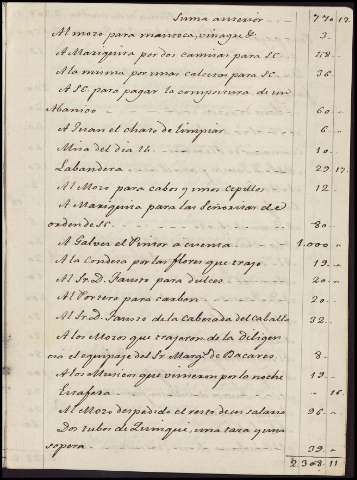 Suma anterior - - 770 17.
Al mozo para manteca, vinagre &. 3 -
A Mariquita por dos camisas para SE. 58
A la misma por unas calcetas para SE. 36
A SE. para pagar la compostura de un
Abanico - - 60 -
A Juan el charo de limpiar - 6 -
Misa del dia 14. - - 10 -
Labandera - - 29 17.
Al Mozo para cabos y unos cepillos 12
A Mariquita para las Señoritas de
orden de SE. - - 80 -
A Galvez el Pintor a cuenta - - 1.000 -
A la Condesa por las flores que trajo 19 -
Al Sr. D. Fausto para dulces - 20 -
Al Portero para carbon - - 20 -
Al Sr. D. Fausto de la Cabezada del Caballo 32
A los Mozos que trajeron de la Diligen-
cia el equipaje del Sr. Marqs. de Bacares 8 -
A los Musicos que vinieron por la noche 19 -
Estafeta - - " 16
Al Mozo despedido el resto de su salario 96 -
Dos tubos de Quinque, una taza y una
sopera - - 39 -
2.368. 11